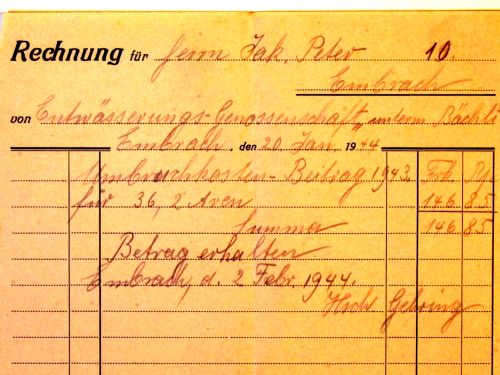 Rechnung für Herrn Jak. Peter 10.
Embrach
von Entwässerungs-Genossenschaft „unterm Bächli
Embrach, den 20 Jan. 1944
Umbruchkosten-Beitrag 1943. Frk. Rp.
für 36,2 Aren 146.85
Summa 146 85
Betrag erhalten
Embrach, d. 2 Febr. 1944.
Hch. Gehring